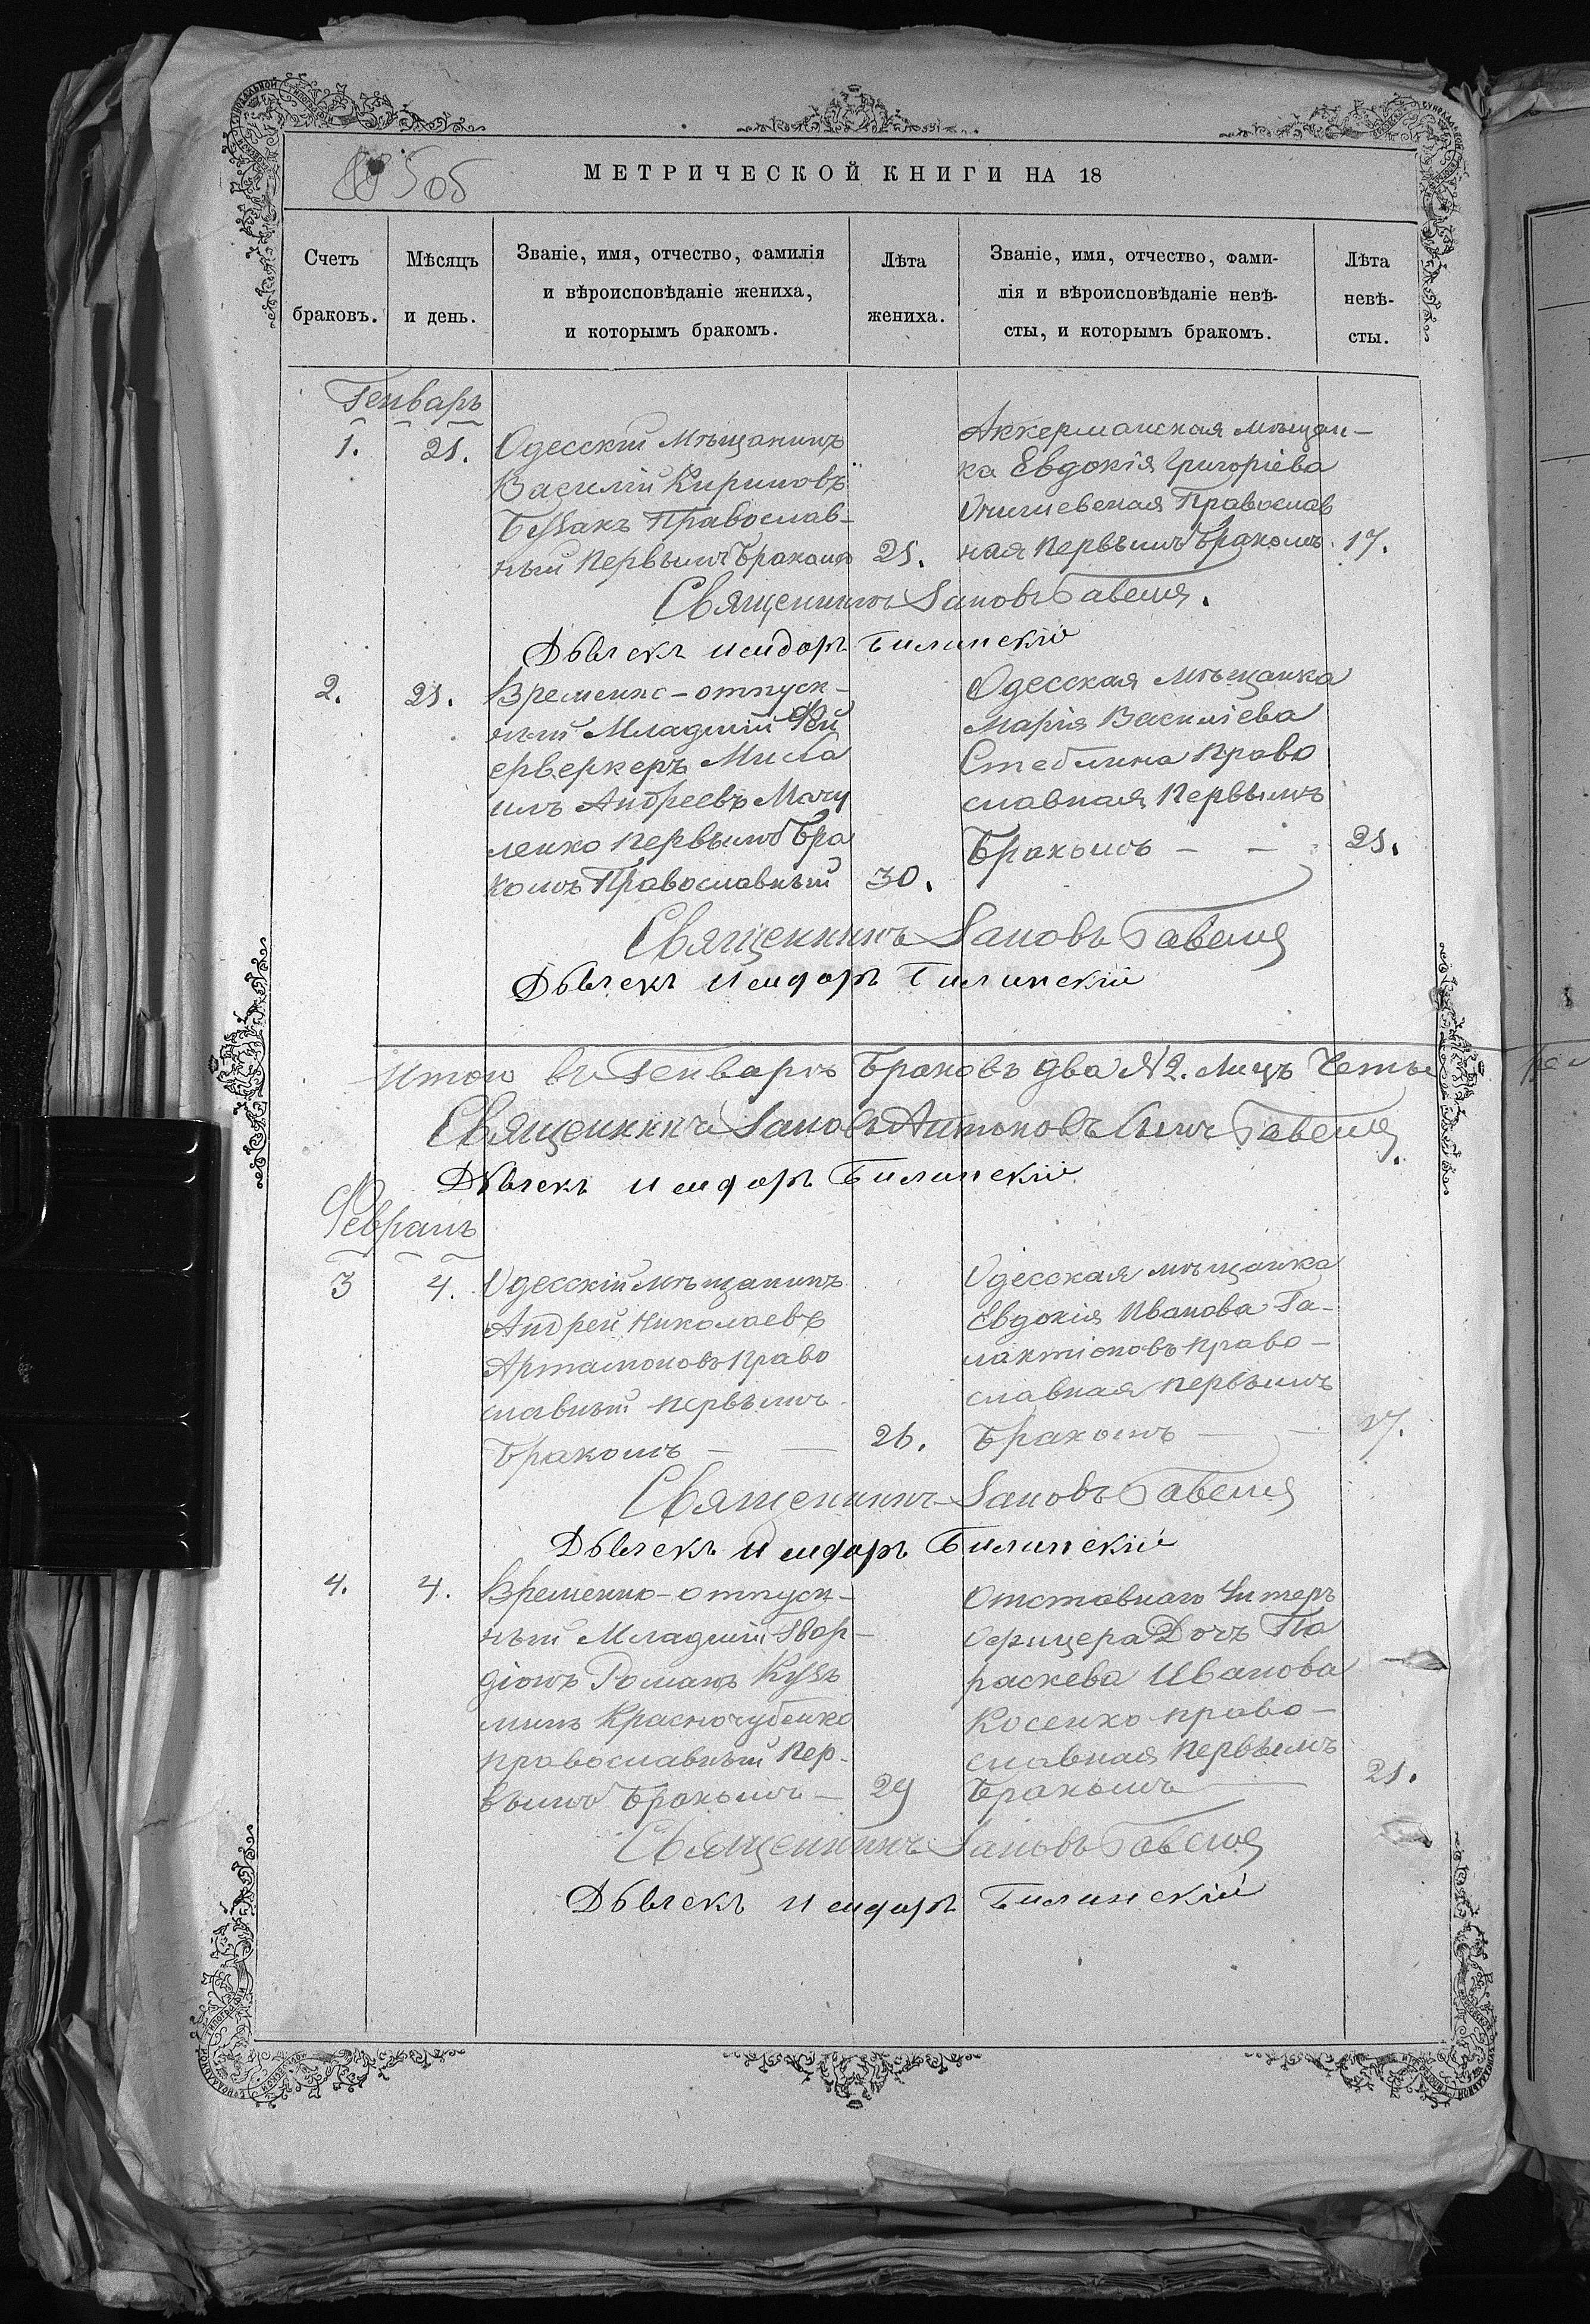 505
МЕТРИЧЕСКОЙ КНИГИ НА 18
Счетъ браковъ.
Мѣсяцъ и день.
Званіе, имя, отчество, фамилія
и вѣроисповѣданіе жениха,
и которымъ бракомъ.
Лѣта жениха.
Званіе, имя, отчество, фами-
лія и вѣроисповѣданіе невѣ-
сты, и которымъ бракомъ.
Лѣта невѣ-
сты.
Генварь
1.
21.
Одесскій Мѣщанинъ
Василій Кириловъ
Православ-
ный Первымъ Бракомъ
21.
Аккерманская мѣщан-
ка Евдокія Григоріева
Православ
ная Первымъ Бракомъ
17.
Священникъ Іаковъ Гавеля.
Дьячекъ Исидоръ Билинскій
2.
21.
Временно-отпуск-
ный Младшій Фей
ерверкеръ Миха
илъ Андреевъ Мачу
ленко Первымъ Бра
комъ Православный
30.
Одесская мѣщанка
Марія Василіева
Стеблина Право
славная Первымъ
Бракомъ - -
21.
Священникъ Іаковъ Гавеля
Дьячекъ Исидоръ Билинскій
Итого въ Генварѣ Браковъ два №2. Лицъ Четы
Священникъ Іаковъ Антоновъ Сынъ Гавеля.
Дьячекъ Исидоръ Билинскій
Февраль
3
4.
Одесскій мѣщанинъ
Андрей Николаевъ
Артамоновъ Право
славный первымъ
Бракомъ - -
26.
Одесская мѣщанка
Евдокія Иванова Га-
лактіоновъ право-
славная первымъ
Бракомъ - -
17.
Священникъ Іаковъ Гавеля
Дьячекъ Исидоръ Билинскій
4.
4.
Временно-отпуск-
ный Младшій Гвар-
діонъ Романъ Кузь
минъ Красночубенко
православный Пер-
вымъ Бракомъ -
29
Отставнаго Унтеръ
Офицера Дочь Па
раскева Иванова
Косенко право-
славная Первымъ
Бракомъ
21.
Священникъ Іаковъ Гавеля
Дьячекъ Исидоръ Билинскій